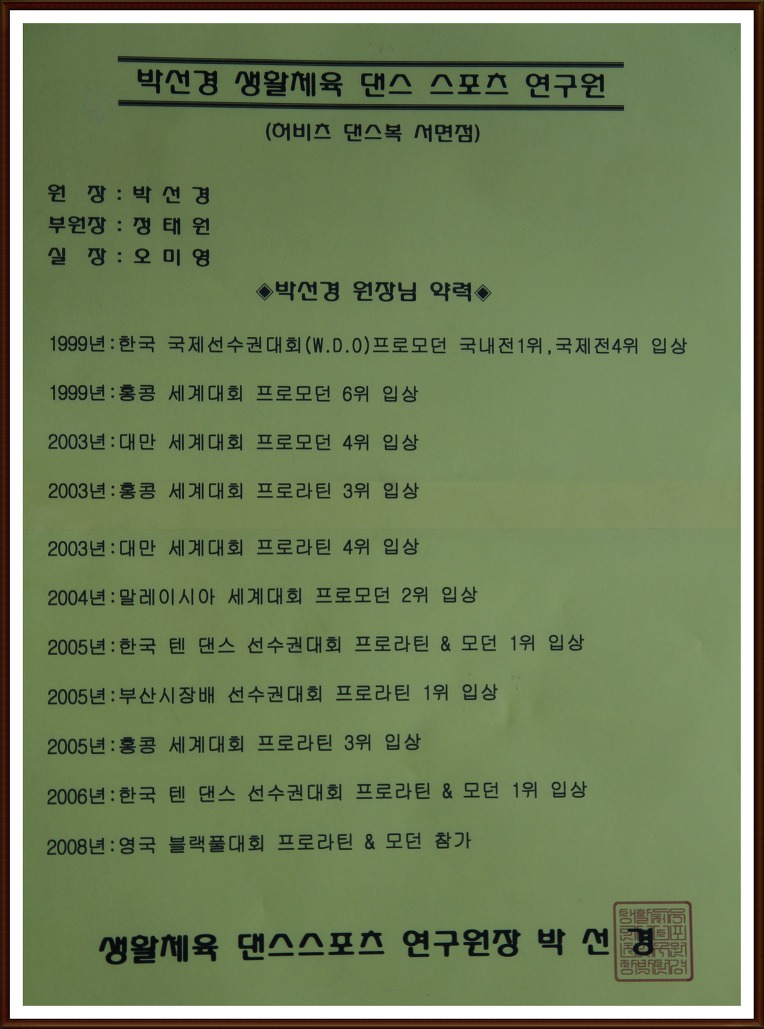 박선경 생활체육 댄스 스포츠 연구원
(허비츠 댄스복 서면점)
원 장 : 박 선 경
부원장 : 정 태 원
실 장 : 오 미 영
◈박선경 원장님 약력◈
1999년:한국 국제선수권대회(W.D.O)프로모던 국내전1위,국제전4위 입상
1999년:홍콩 세계대회 프로모던 6위 입상
2003년:대만 세계대회 프로모던 4위 입상
2003년:홍콩 세계대회 프로라틴 3위 입상
2003년:대만 세계대회 프로라틴 4위 입상
2004년:말레이시아 세계대회 프로모던 2위 입상
2005년:한국 텐 댄스 선수권대회 프로라틴 & 모던 1위 입상
2005년:부산시장배 선수권대회 프로라틴 1위 입상
2005년:홍콩 세계대회 프로라틴 3위 입상
2006년:한국 텐 댄스 선수권대회 프로라틴 & 모던 1위 입상
2008년:영국 블랙풀대회 프로라틴 & 모던 참가
생활체육 댄스스포츠 연구원장 박 선 경